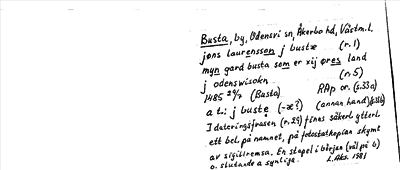 Busta, by, Odensvi sn, Åkerbo hd, Västm.l.
jøns laurensson j bustæ (r.1)
myn gard busta som er xij øres land
j odenswisokn (r.5)
1485 24/7 (Busta) RAp or. (s.33a)
a t.: j buste (-æ?) (annan hand) (s.33b)
I dateringsfrasen (r.29) finns säkerl. ytterl.
ett bel. på namnet, på fotostatkopian skymt
av sigillremsa. En stapel i början (väl på b)
o. slutande a synliga. L.Aks. 1981